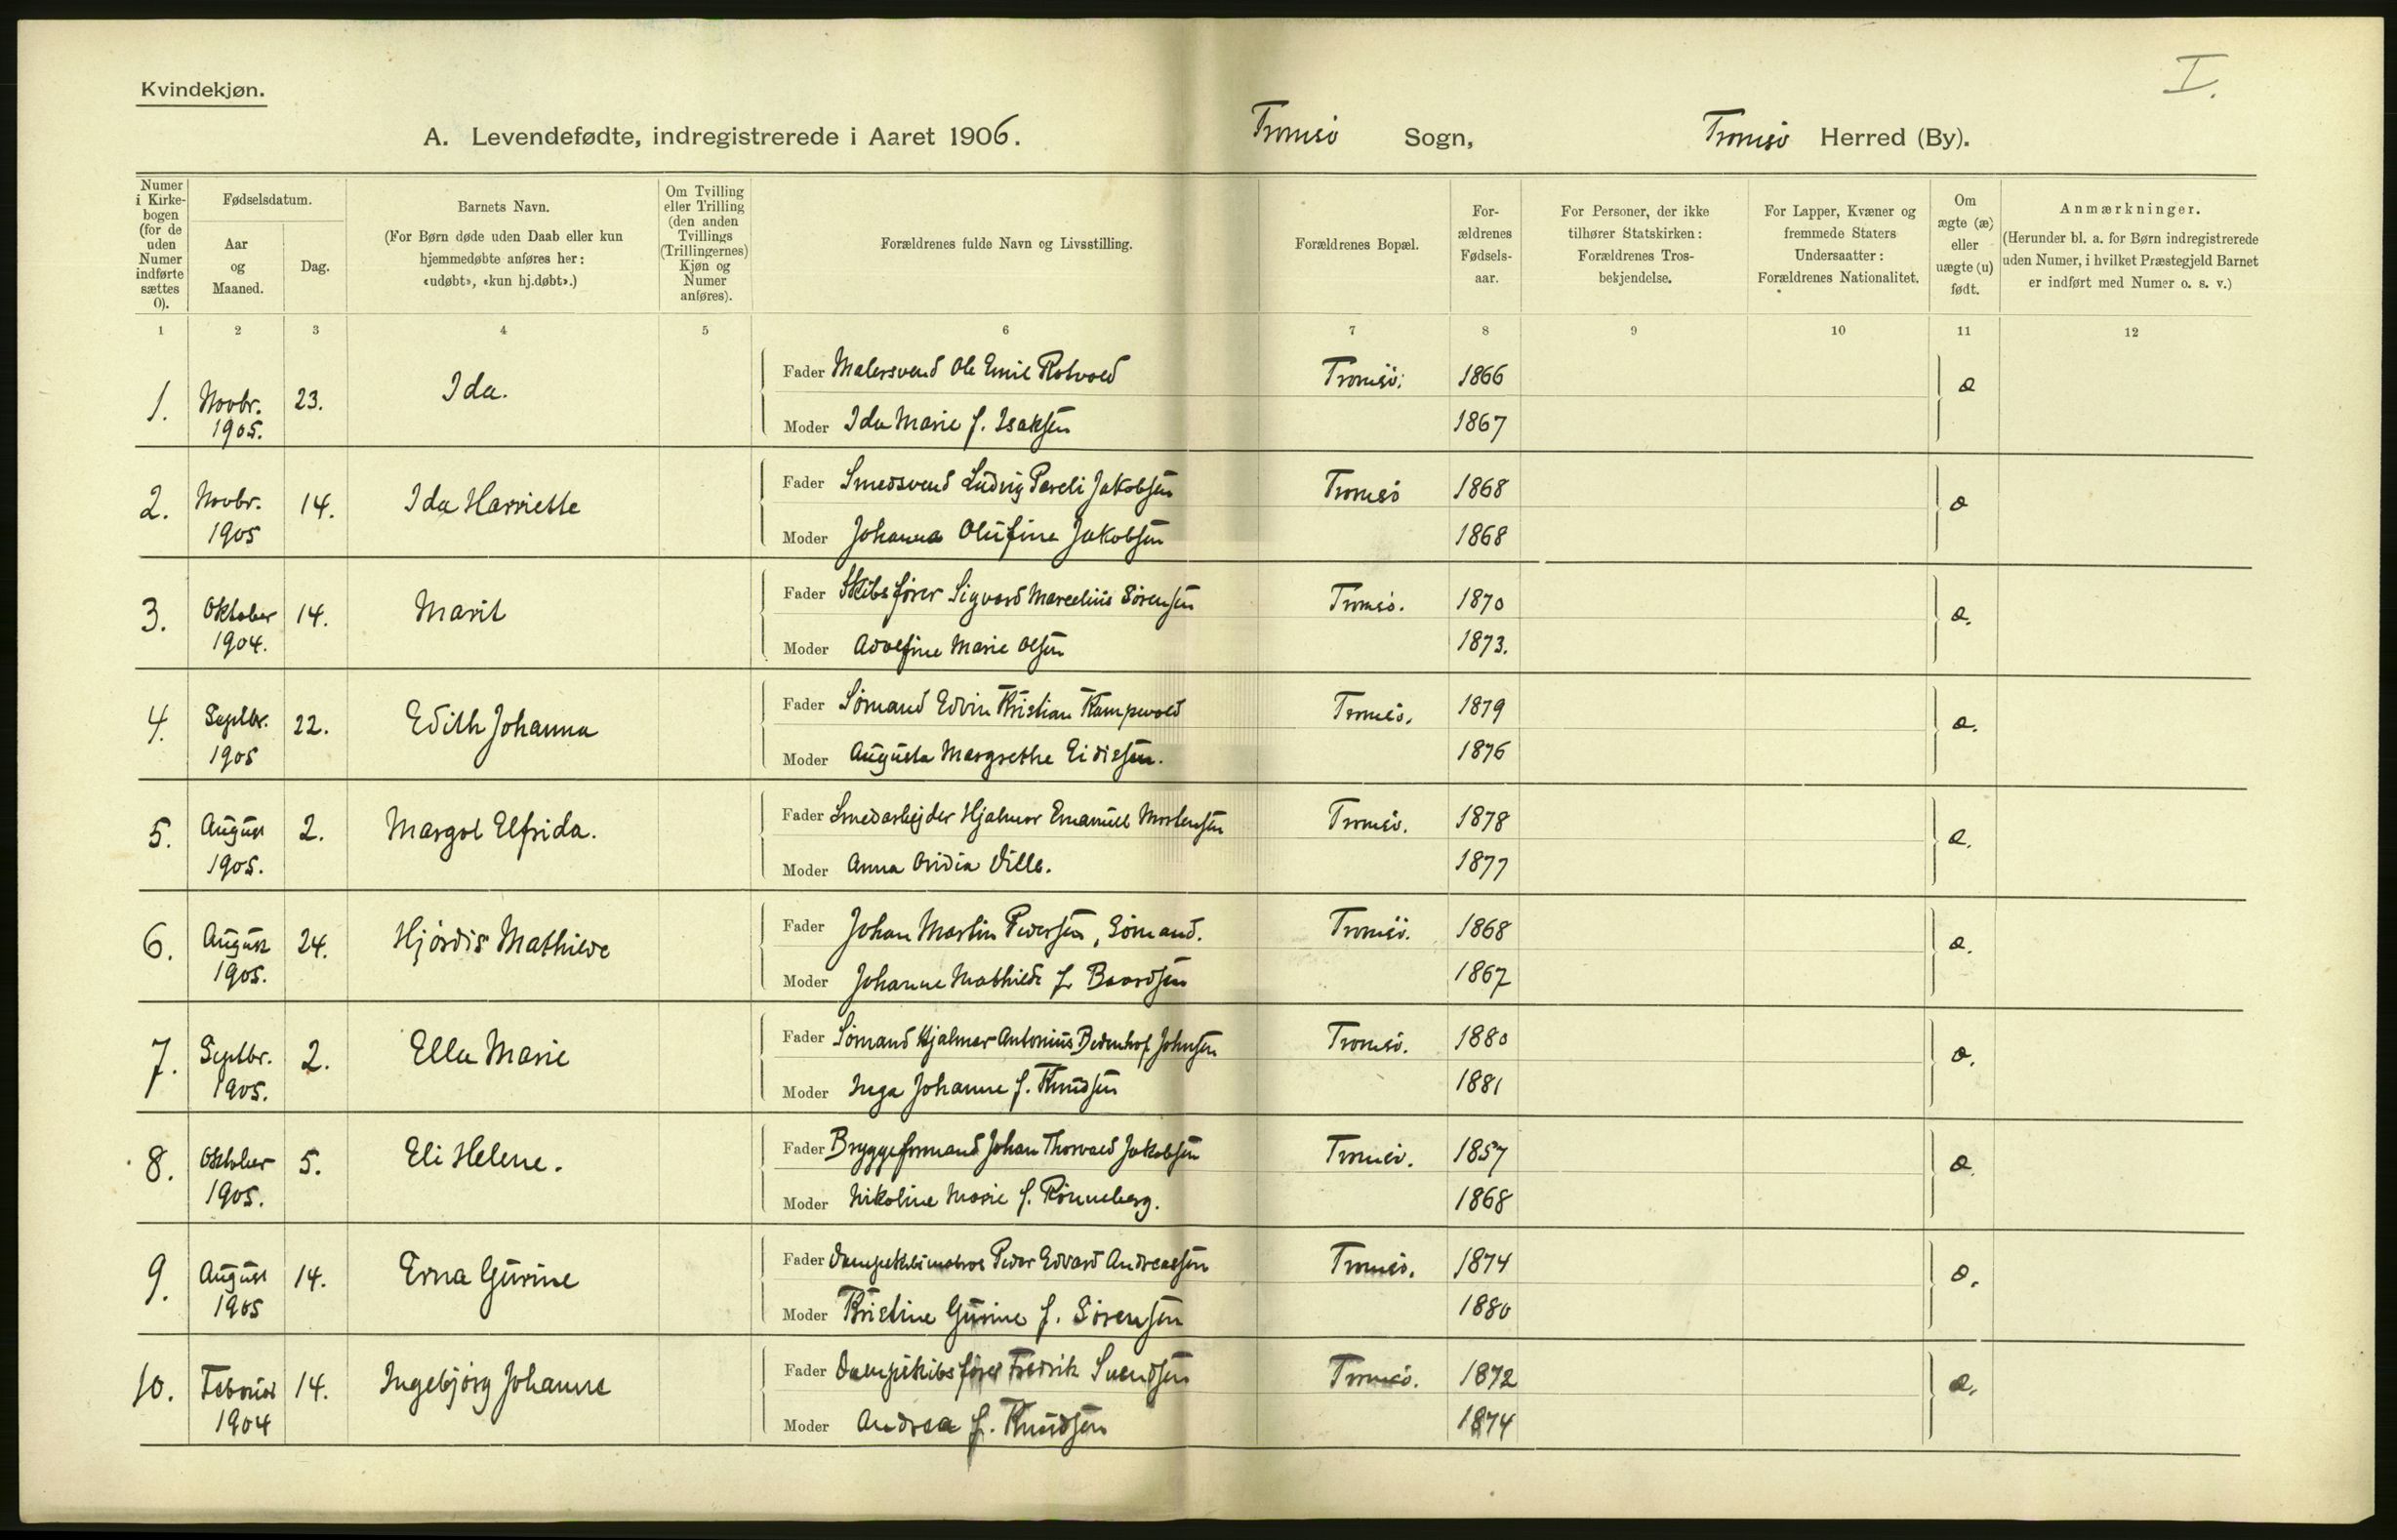 I.
Kvindekjøn.
A. Levendefødte, indregistrerede i Aaret 1906. Tromsø Sogn, Tromsø Herred (By).
Numer i Kirke-bogen (for de uden Numer indførte sættes 0).
Fødselsdatum.
Aar og Maaned.
Dag.
Barnets Navn.
(For Børn døde uden Daab eller kun hjemmedøbte anføres her: «udøbt», «kun hj.døbt».)
Om Tvilling eller Trilling (den anden Tvillings (Trillingernes) Kjøn og Numer anføres).
Forældrenes fulde Navn og Livsstilling.
Forældrenes Bopæl.
For-ældrenes Fødsels-aar.
For Personer, der ikke tilhører Statskirken: Forældrenes Tros-bekjendelse.
For Lapper, Kvæner og fremmede Staters Undersaatter: Forældrenes Nationalitet.
Om ægte (æ) eller uægte (u) født.
Anmærkninger.
(Herunder bl. a. for Børn indregistrerede uden Numer, i hvilket Præstegjeld Barnet er indført med Numer o. s. v.)
1 2 3 4 5 6 7 8 9 10 11 12
1. Novbr. 1905. 23. Ida. Fader Malersvend Ole Emil Rotvold Tromsø. 1866 æ
Moder Ida Marie f. Isaksen 1867
2. Novbr. 1905 14. Ida Harriette Fader Smedsvend Ludvig Pareli Jakobsen Tromsø 1868 æ
Moder Johanna Olufine Jakobsen 1868
3. Oktober 1904. 14. Marit Fader Skibsfører Sigvard Marcelius Sørensen Tromsø. 1870 æ.
Moder Adolfine Marie Olsen 1873.
4. Septbr. 1905 22. Edith Johanna Fader Sømand Edvin Kristian Kampevold Tromsø. 1879 æ.
Moder Augusta Margrethe Eidissen. 1876
5. August 1905. 2. Margot Elfrida. Fader Smedarbejder Hjalmar Emanuel Mortensen Tromsø. 1878 æ.
Moder Anna Ovidia 1877
6. August 1905. 24. Hjørdis Mathilde Fader Johan Martin Pedersen, Sømand. Tromsø. 1868 æ.
Moder Johanne Mathilde f. Baardsen 1867
7. Septbr. 1905. 2. Ella Marie Fader Sømand Hjalmar Antonius Johnsen Tromsø. 1880 æ.
Moder Inga Johanne f. Knudsen 1881
8. Oktober 1905. 5. Eli Helene. Fader Bryggeformand Johan Thorvald Jakobsen Tromsø. 1857 æ.
Moder Nikoline Marie f. Rønneberg. 1868
9. August 1905 14. Erna Gurine Fader Dampskibsmatros Peder Edvard Andreassen Tromsø. 1874 æ.
Moder Kristine Gurine f. Sørensen 1880
10. Februar 1904 14. Ingebjørg Johanne Fader Dampskibsfører Fredrik Svendsen Tromsø. 1872 æ.
Moder Andrea f. Knudsen 1874